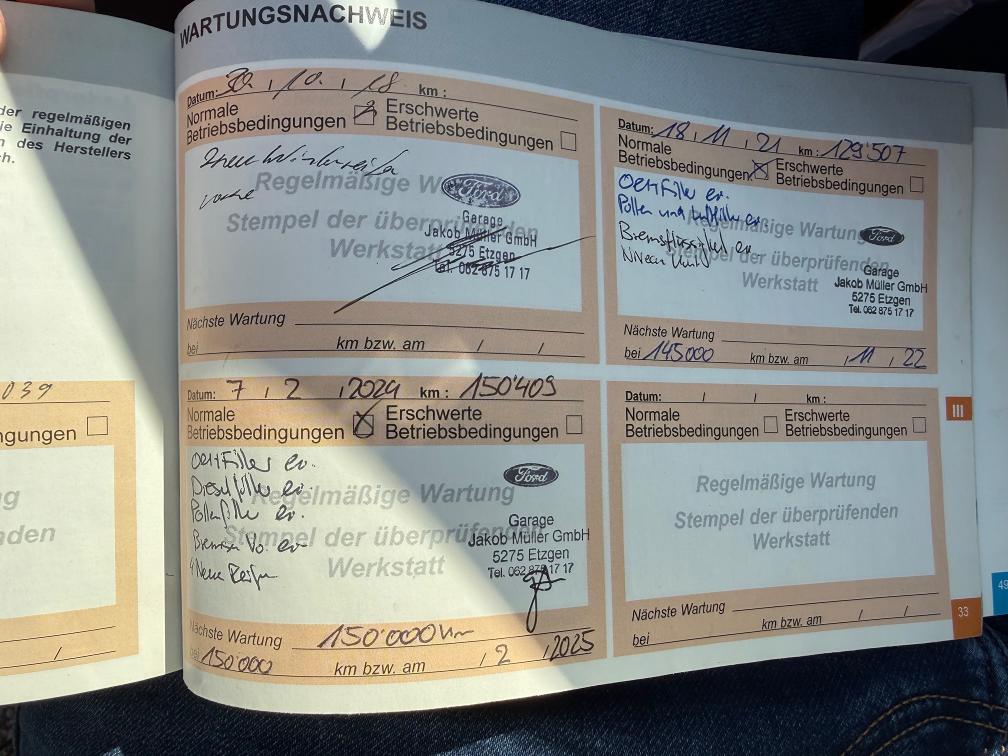 WARTUNGSNACHWEIS
der regelmäßigen
ie Einhaltung der
n des Herstellers
ch.
039
ngungen
ng
nden
/
Datum: 30. , 10. , 18 km :
Normale Betriebsbedingungen
Erschwerte Betriebsbedingungen
Regelmäßige W
Stempel der überprüfenden
Werkstatt
Ford
Garage
Jakob Müller GmbH
5275 Etzgen
Tel. 062 875 17 17
Nächste Wartung
bei km bzw. am / /
Datum: 18 , 11 , 21 km : 129'507
Normale Betriebsbedingungen
Erschwerte Betriebsbedingungen
Oel+Filter er.
Pollen und er.
Bremsflüssigkeit er.
Regelmäßige Wartung
Stempel der überprüfenden
Werkstatt
Ford
Garage
Jakob Müller GmbH
5275 Etzgen
Tel. 062 875 17 17
Nächste Wartung
bei 145'000 km bzw. am / 11 / 22
Datum: 7 , 2 , 2024 km : 150'409
Normale Betriebsbedingungen
Erschwerte Betriebsbedingungen
Oel+Filter er.
Dieselfilter er.
Pollenfilter er.
Bremsen Vo. er.
4 Neue Reifen
Regelmäßige Wartung
Stempel der überprüfenden
Werkstatt
Ford
Garage
Jakob Müller GmbH
5275 Etzgen
Tel. 062 875 17 17
Nächste Wartung 150'000 Km
bei 150'000 km bzw. am , 2 , 2025
Datum: / / km :
Normale Betriebsbedingungen
Erschwerte Betriebsbedingungen
Regelmäßige Wartung
Stempel der überprüfenden
Werkstatt
Nächste Wartung
bei km bzw. am / /
III
33
49